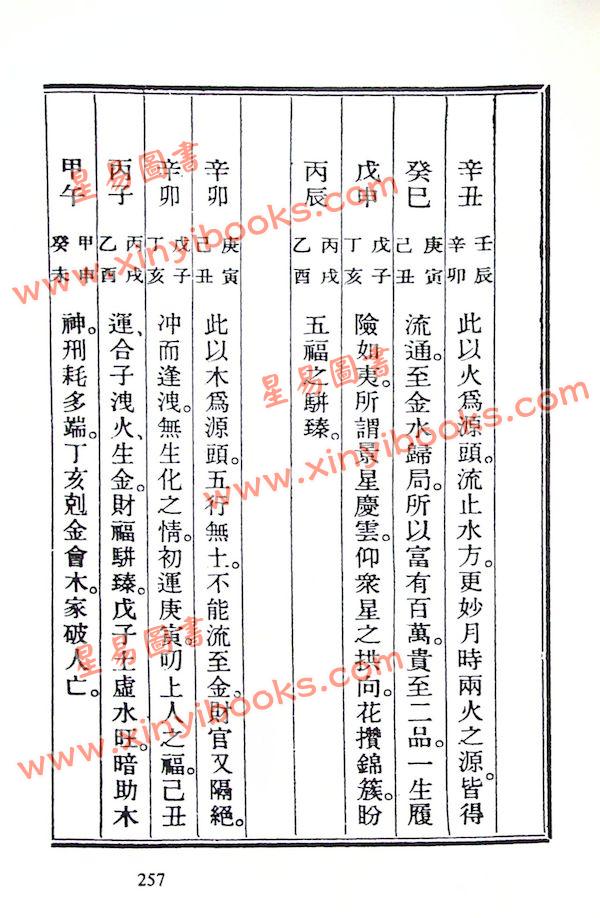 辛丑 壬辰 辛卯 此以火爲源頭。流止水方。更妙月時兩火之源。皆得
癸巳 庚寅 己丑 流通。至金水歸局。所以富有百萬。貴至二品。一生履
戊申 戊子 丁亥 險如夷。所謂景星慶雲。仰衆星之拱向。花攢錦簇。盼
丙辰 丙戌 乙酉 五福之駢臻。
辛卯 庚寅 己丑 此以木爲源頭。五行無土。不能流至金。財官又隔絕。
辛卯 戊子 丁亥 冲而逢洩。無生化之情。初運庚寅。叨上人之福。己丑
丙子 丙戌 乙酉 運、合子洩火、生金。財福駢臻。戊子土虛水旺。暗助木
甲午 甲申 癸未 神。刑耗多端。丁亥剋金會木。家破人亡。
257
星易圖書
www.xinyibooks.com
星易圖書
www.xinyibooks.com
星易圖書
www.xinyibooks.com